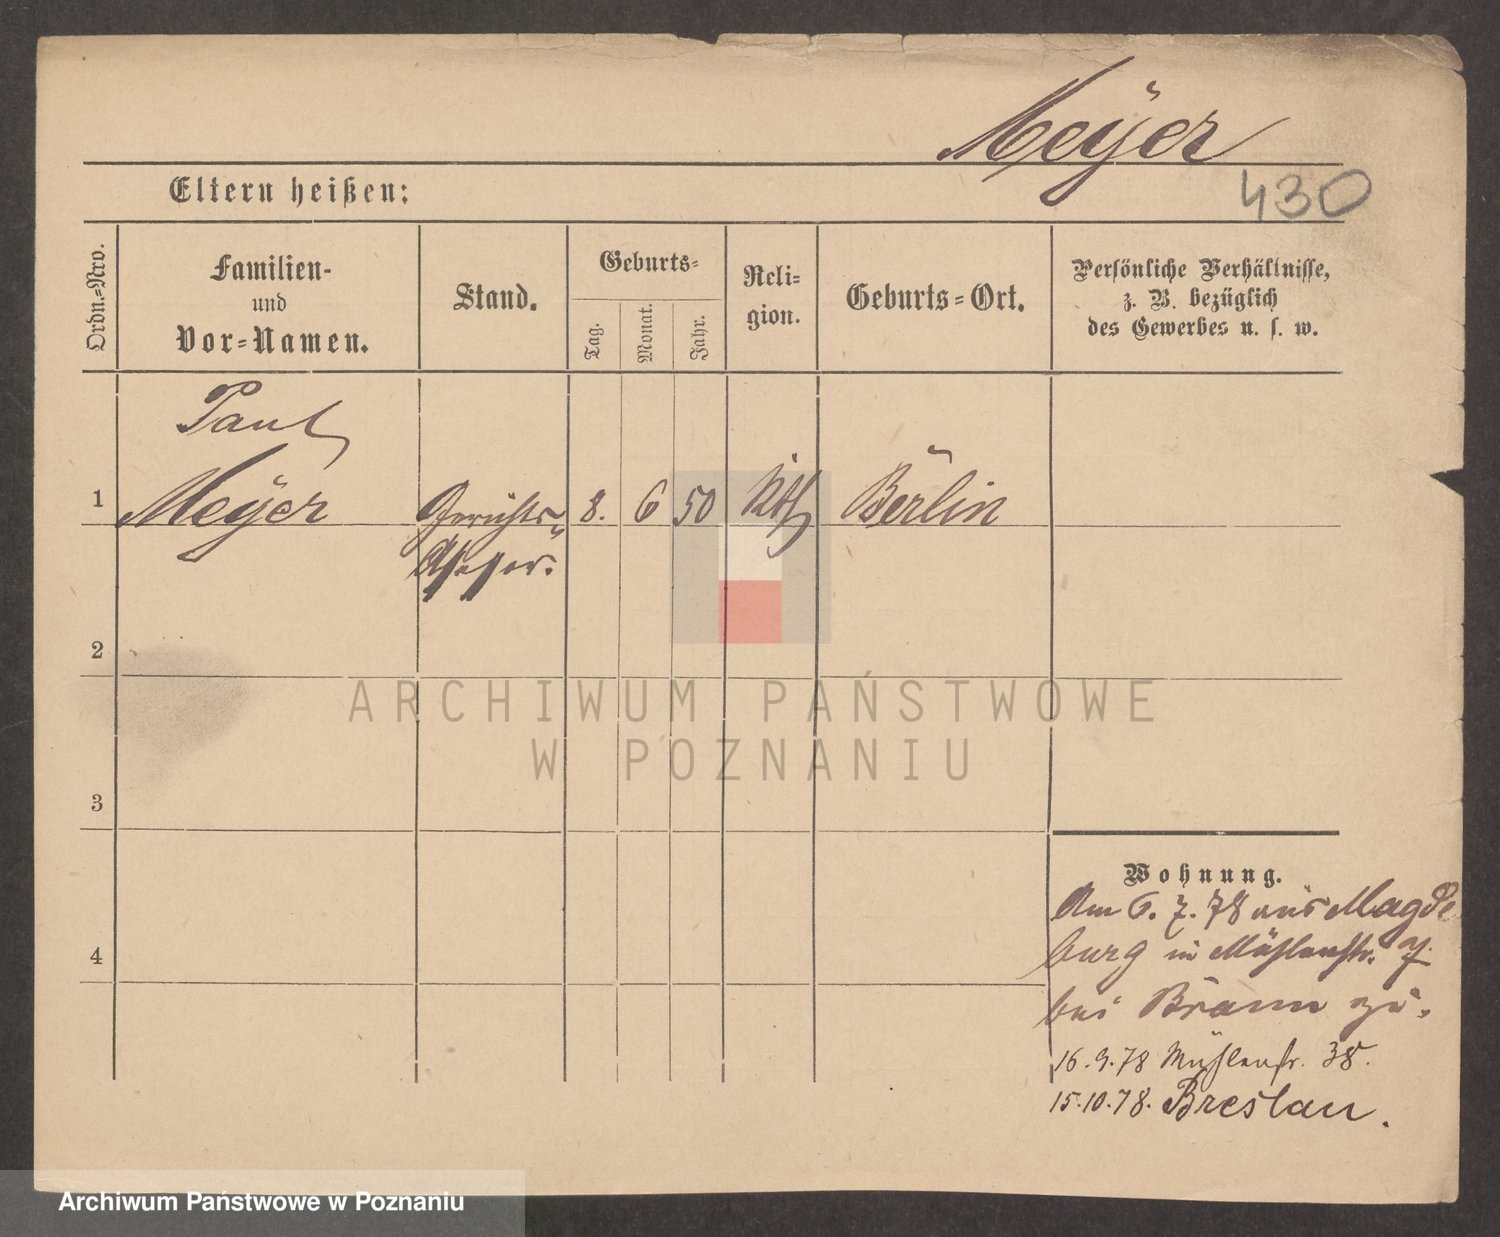 Meÿer
430
Eltern heißen:
Ordn.-Nro.
Familien-
und
Vor-Namen.
Stand.
Geburts-
Tag.
Monat.
Jahr.
Reli-
gion.
Geburts-Ort.
Persönliche Verhältnisse,
z. B. bezüglich
des Gewerbes u. s. w.
Paul
1 Meÿer Gerichts- 8. 6 50 kth Berlin
Assessor.
2
3
4
Wohnung.
Am 6. 7. 78 aus Magde
burg in Mühlenstr. 7
bei Braun zu.
16.9.78 Mühlenstr. 38.
15.10.78. Breslau.
ARCHIWUM PAŃSTWOWE
W POZNANIU
Archiwum Państwowe w Poznaniu